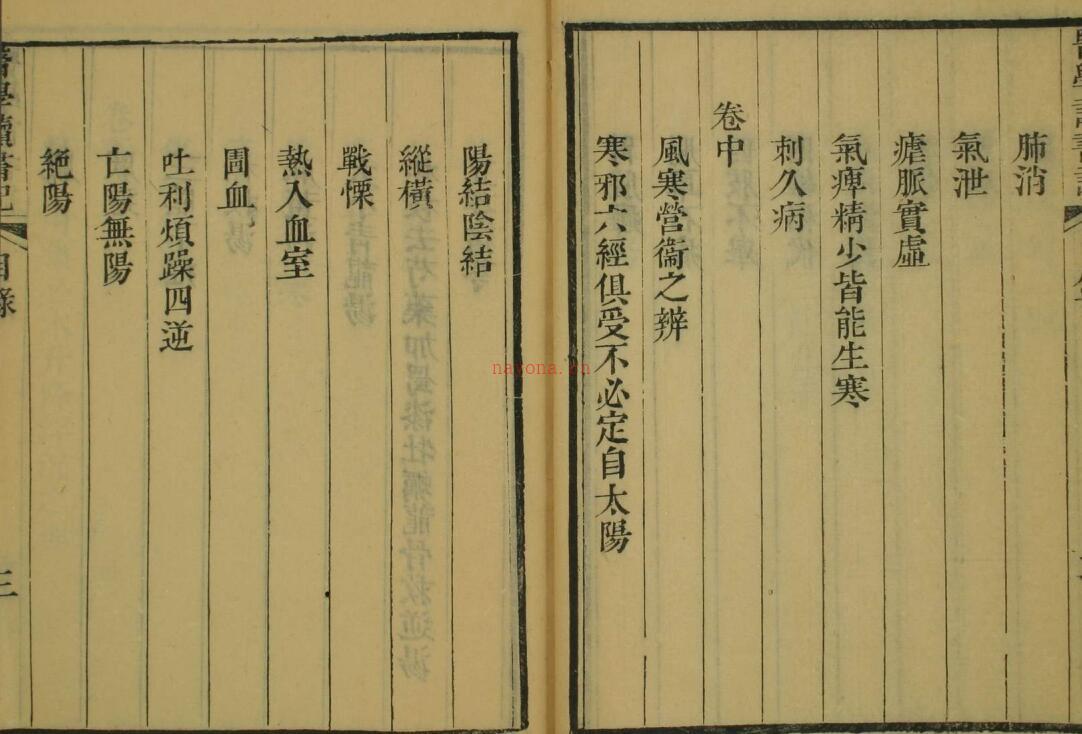 肺消
氣泄
瘧脈實虛
氣痺精少皆能生寒
刺久病
卷中
風寒營衞之辨
寒邪六經俱受不必定自太陽
陽結陰結
縱橫
戰慄
熱入血室
圊血
吐利煩躁四逆
亡陽無陽
絕陽
醫學讀書記
目錄
三
nayona.cn